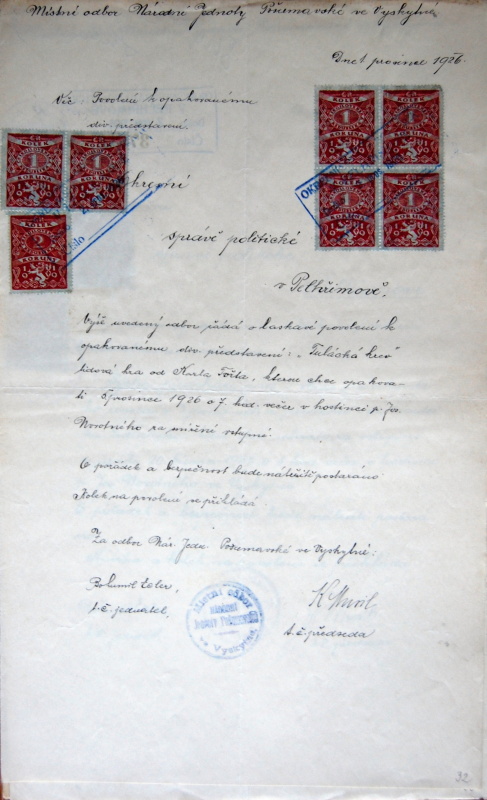 Místní odbor Národní Jednoty Pošumavské ve Vyskytné
Dne 1 prosince 1926.
Věc: Povolení k opakovanému
div. představení.
Okresní
správě politické
v Pelhřimově,
Výše uvedený odbor žádá o laskavé povolení k
opakovanému div. představení: „Tulácká krev"
lidová hra od Karla Fořta, kterou chce opakova-
ti 5 prosince 1926 o 7 hod. večer v hostinci p. Jos.
Novotného za snížené vstupné.
O pořádek a bezpečnost bude náležitě postaráno
Kolek na povolení se přikládá.
Za odbor Nár. Jedn. Pošumavské ve Vyskytné:
Bohumil
t. č. jednatel,
t. č. předseda
Místní odbor
Národní
Jednoty Pošumavské
ve Vyskytné
ČS
KOLEK
1
KORUNA
ČS
KOLEK
1
KORUNA
KOLEK
2
KORUNY
ČS
KOLEK
1
KORUNA
ČS
KOLEK
1
KORUNA
KOLEK
1
KORUNA
KOLEK
1
KORUNA
32